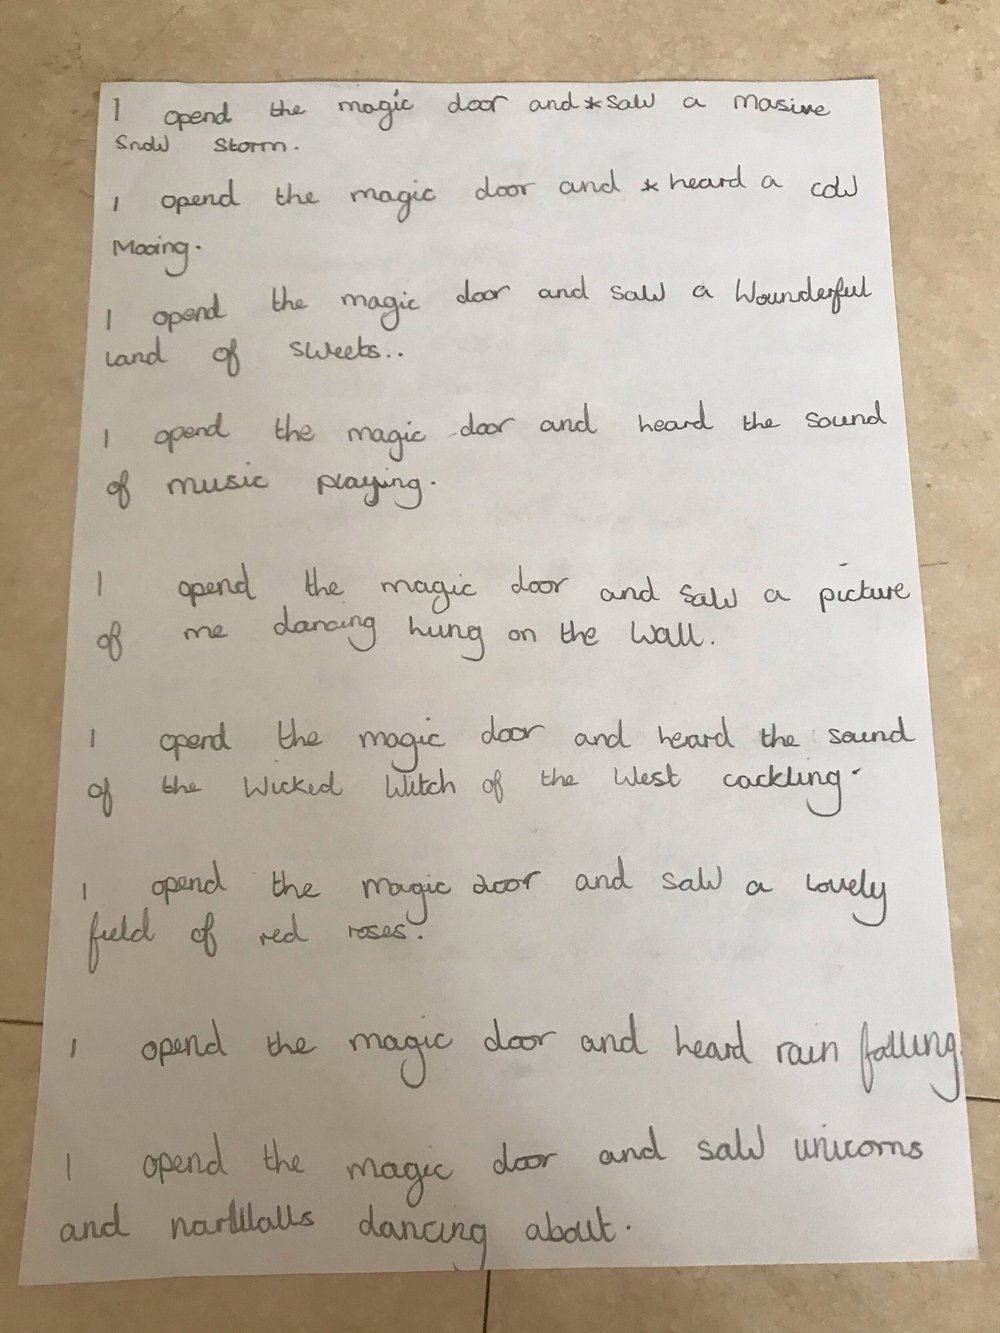 I opend the magic door and *saw a masive
snow storm.
I opend the magic door and *heard a cow
Mooing.
I opend the magic door and saw a Wounderful
land of sweets..
I opend the magic door and heard the sound
of music playing.
I opend the magic door and saw a picture
of me dancing hung on the wall.
I opend the magic door and heard the sound
of the Wicked Witch of the West cackling.
I opend the magic door and saw a lovely
field of red roses.
I opend the magic door and heard rain falling.
I opend the magic door and saw unicorns
and narWalls dancing about.